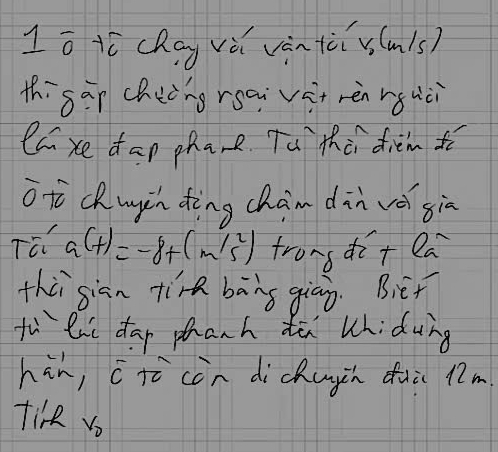 1 ô tô chạy với vận tốc v₀(m/s)
thì gặp chướng ngại vật nên người
lái xe đạp phanh. Từ thời điểm đó
ô tô chuyển động chậm dần với gia
tốc a(t)=-8t(m/s²) trong đó t là
thời gian tính bằng giây. Biết
từ lúc đạp phanh đến khi dừng
hẳn, ô tô còn di chuyển được 12m.
Tính v₀